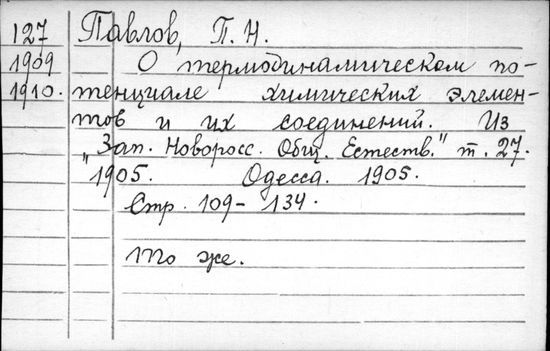 127 Павлов, П. Н.
1909 О термодинамическом по-
1910. тенциале химических элемен-
тов и их соединений. Из
"Зап. Новоросс. Общ. Естеств." т. 27.
1905. Одесса. 1905.
Стр. 109- 134.
То же.